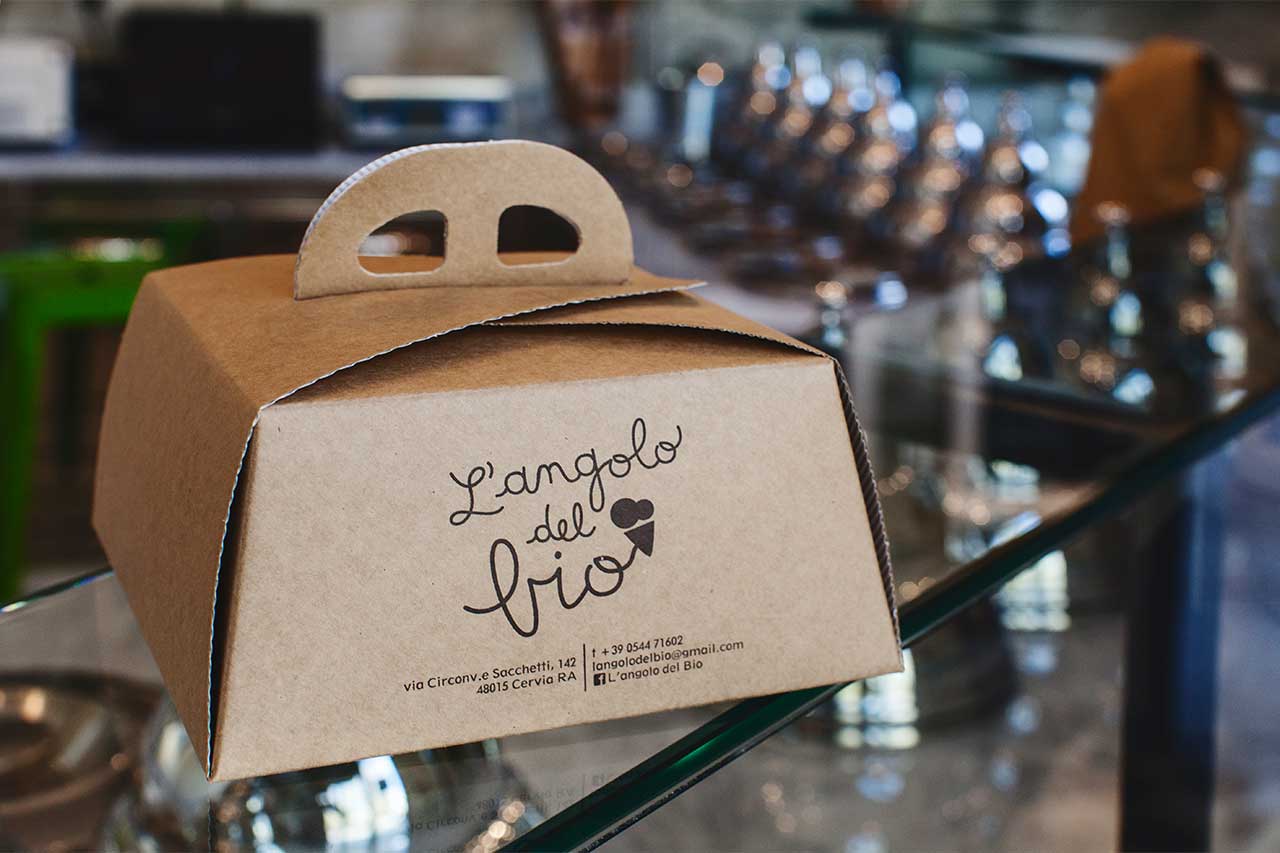 L'angolo
del
bio
via Circonv.e Sacchetti, 142
48015 Cervia RA
t +39 0544 71602
langolodelbio@gmail.com
L'angolo del Bio